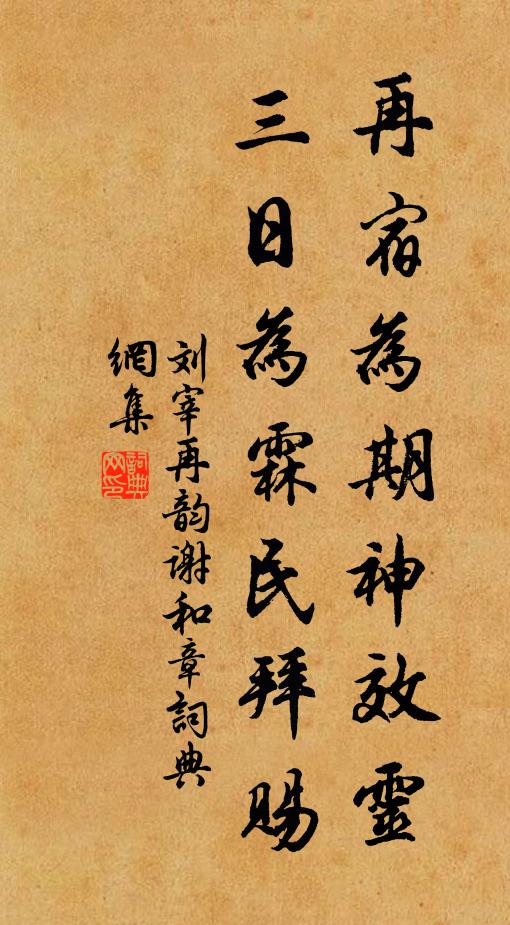 再宿為期神效靈
三日為霖民拜賜
刘宰再韵谢和章詞典
網集
詞典網印